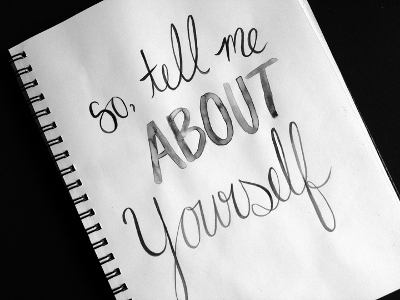 So, tell me
ABOUT
Yourself